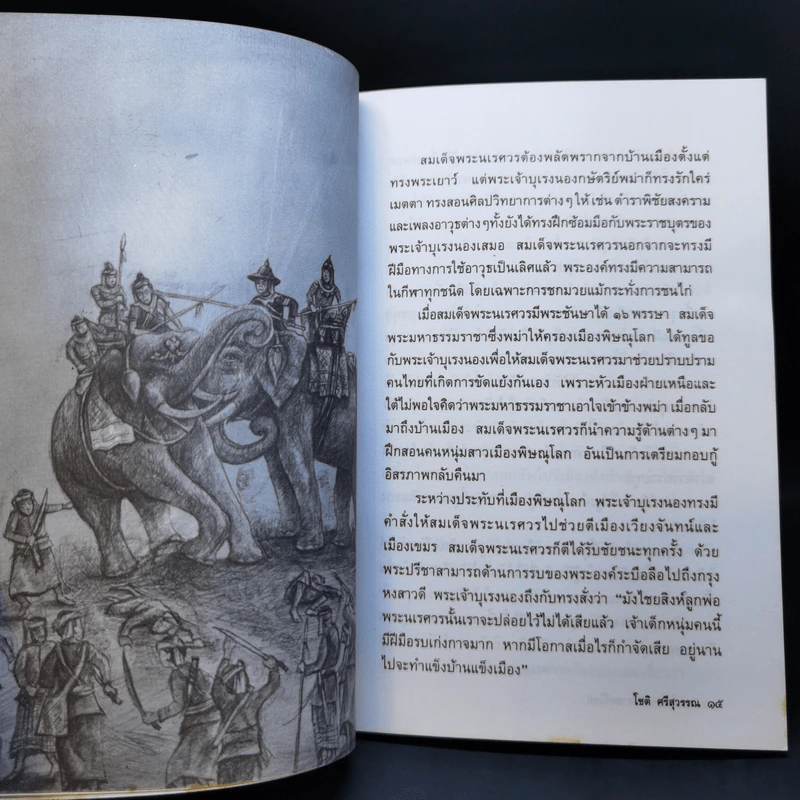 สมเด็จพระนเรศวรต้องพลัดพรากจากบ้านเมืองตั้งแต่
ทรงพระเยาว์ แต่พระเจ้าบุเรงนองกษัตริย์พม่าก็ทรงรักใคร่
เมตตา ทรงสอนศิลปวิทยาการต่างๆ ให้ เช่น ตำราพิชัยสงคราม
และเพลงอาวุธต่างๆทั้งยังได้ทรงฝึกซ้อมมือกับพระราชบุตรของ
พระเจ้าบุเรงนองเสมอ สมเด็จพระนเรศวรนอกจากจะทรงมี
ฝีมือทางการใช้อาวุธเป็นเลิศแล้ว พระองค์ทรงมีความสามารถ
ในกีฬาทุกชนิด โดยเฉพาะการชกมวยแม้กระทั่งการชนไก่
เมื่อสมเด็จพระนเรศวรมีพระชันษาได้ ๑๖ พรรษา สมเด็จ
พระมหาธรรมราชาซึ่งพม่าให้ครองเมืองพิษณุโลก ได้ทูลขอ
กับพระเจ้าบุเรงนองเพื่อให้สมเด็จพระนเรศวรมาช่วยปราบปราม
คนไทยที่เกิดการขัดแย้งกันเอง เพราะหัวเมืองฝ่ายเหนือและ
ใต้ไม่พอใจคิดว่าพระมหาธรรมราชาเอาใจเข้าข้างพม่า เมื่อกลับ
มาถึงบ้านเมือง สมเด็จพระนเรศวรก็นำความรู้ด้านต่างๆ มา
ฝึกสอนคนหนุ่มสาวเมืองพิษณุโลก อันเป็นการเตรียมกอบกู้
อิสรภาพกลับคืนมา
ระหว่างประทับที่เมืองพิษณุโลก พระเจ้าบุเรงนองทรงมี
คำสั่งให้สมเด็จพระนเรศวรไปช่วยตีเมืองเวียงจันทน์และ
เมืองเขมร สมเด็จพระนเรศวรก็ตีได้รับชัยชนะทุกครั้ง ด้วย
พระปรีชาสามารถด้านการรบของพระองค์ระบือลือไปถึงกรุง
หงสาวดี พระเจ้าบุเรงนองถึงกับทรงสั่งว่า “มังไชยสิงห์ลูกพ่อ
พระนเรศวรนั้นเราจะปล่อยไว้ไม่ได้เสียแล้ว เจ้าเด็กหนุ่มคนนี้
มีฝีมือรบเก่งกาจมาก หากมีโอกาสเมื่อไรก็กำจัดเสีย อยู่นาน
ไปจะทำแข็งบ้านแข็งเมือง”
โชติ ศรีสุวรรณ ๑๕